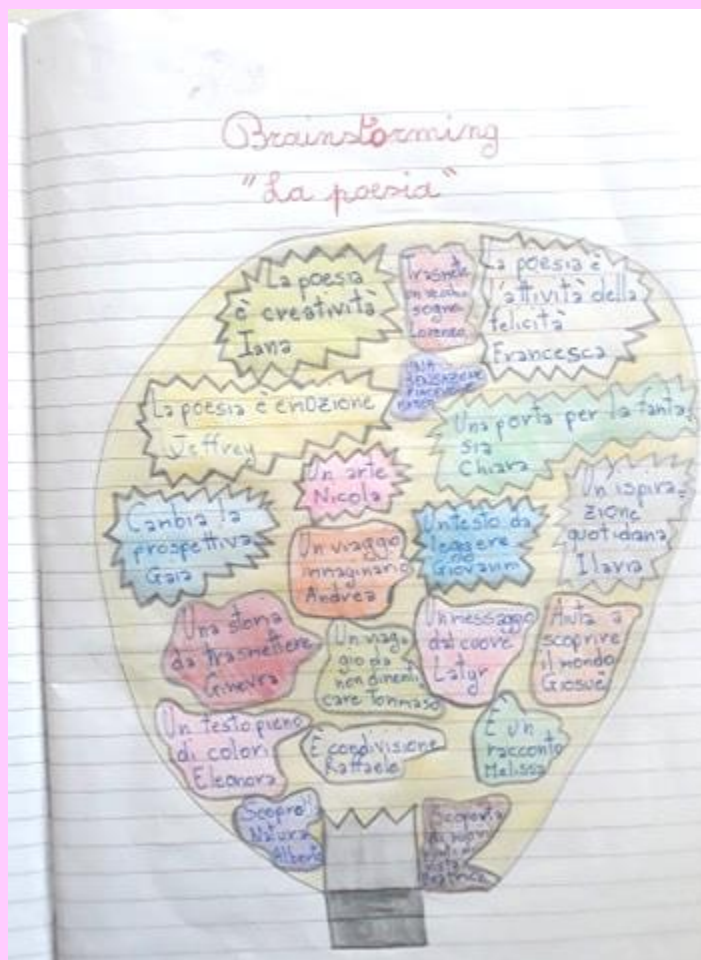 Brainstorming
"La poesia"
La poesia
è creatività
Iana
Trasmette
un vecchio
sogno
Lorenzo
La poesia è
l'attività della
felicità
Francesca
UNA
SENSAZIONE
PIACEVOLE
La poesia è emozione
Jeffrey
Una porta per la fanta
sia
Chiara
Un arte
Nicola
Cambia la
prospettiva
Gaia
Un viaggio
immaginario
Andrea
Un testo da
leggere
Giovanni
Un'ispira
zione
quotidiana
Ilaria
Una storia
da trasmettere
Ginevra
Un viag
gio da
non dimenti
care Tommaso
Un messaggio
dal cuore
Latyr
Aiuta a
scoprire
il mondo
Giosuè
Un testo pieno
di colori
Eleonora
È condivisione
Raffaele
È un
racconto
Melissa
Scopre la
Natura
Alberto
Scoperta
di nuovi
punti di
vista
Beatrice